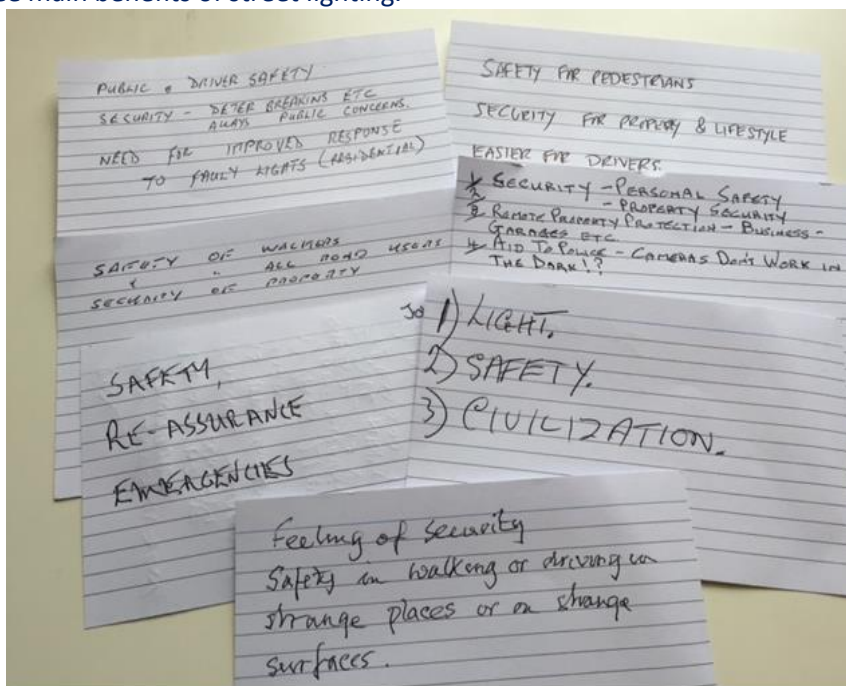 se main benefits of street lighting.
PUBLIC & DRIVER SAFETY
SECURITY - DETER BREAKINS ETC
ALLAYS PUBLIC CONCERNS.
NEED FOR IMPROVED RESPONSE
TO FAULY LIGHTS (RESIDENTIAL)
SAFETY FOR PEDESTRIANS
SECURITY FOR PROPERTY & LIFESTYLE
EASIER FOR DRIVERS.
SECURITY - PERSONAL SAFETY
- PROPERTY SECURITY
REMOTE PROPERTY PROTECTION - BUSINESS -
GARAGES ETC
4 AID TO POLICE - CAMERAS DON'T WORK IN
THE DARK!?
SAFETY OF WALKERS
" " ALL ROAD USERS
SECURITY OF PROPERTY
SAFETY,
RE-ASSURANCE
EMERGENCIES
1) LIGHT.
2) SAFETY.
3) CIVILIZATION.
Feeling of Security
Safety in walking or driving in
strange places or on strange
surfaces.